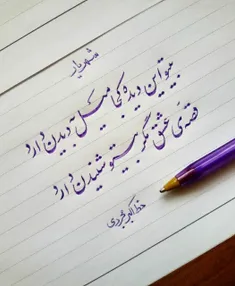 شهریار
بیتو این دیده کجا میل به دیدن دارد
قصه‌ی عشق مگر بیتو شنیدن دارد
خط اکبر مجردی